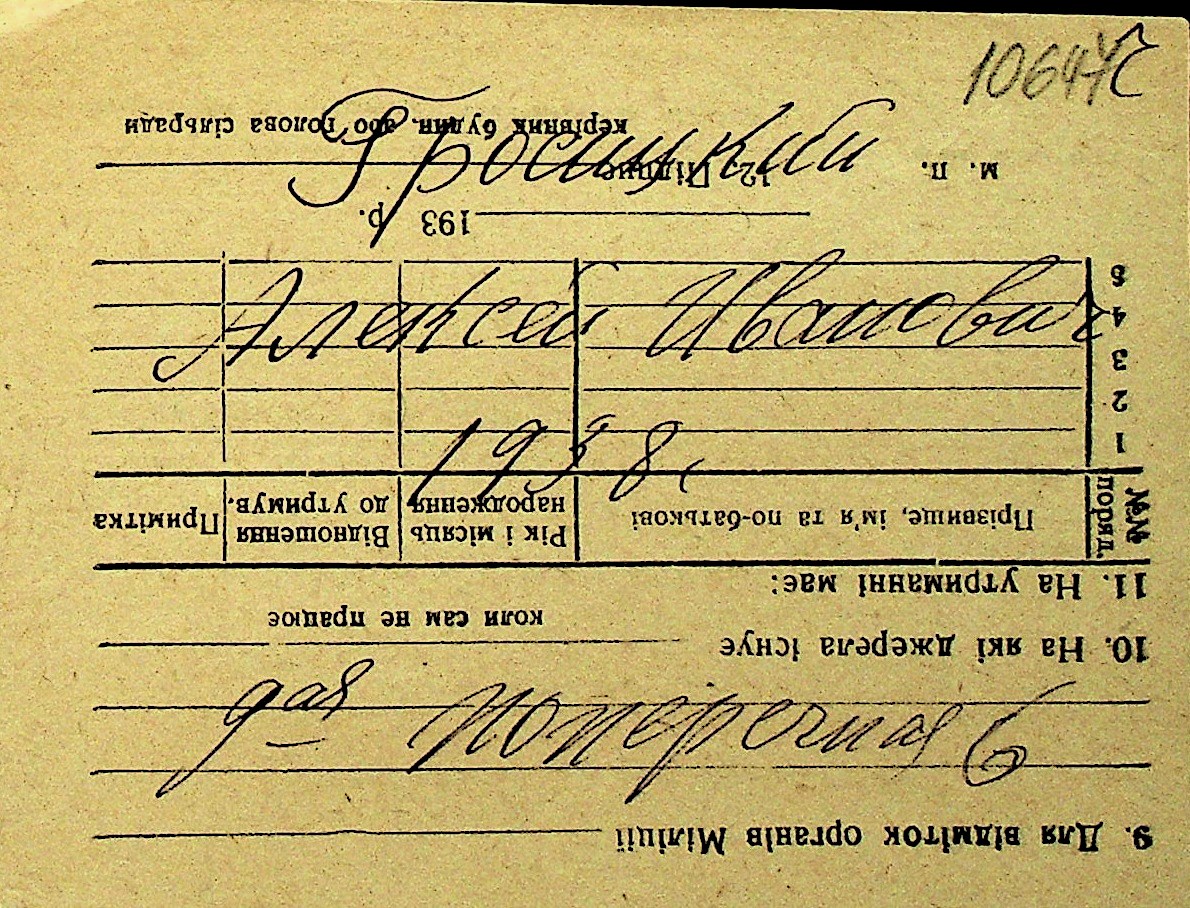 10647
Гросицкий
Алексей Иванович
1938.
9ая Поперечная 6
9. Для відміток органів Міліції
10. На які джерела існує
коли сам не працює
11. На утриманні має:
№№ поряд. Прізвище, ім'я та по-батькові Рік і місяць народження Відношення до утримув. Примітка
1
2
3
4
5
193 р.
м. п. 12. Підпис
керівник будин. або голова сільради